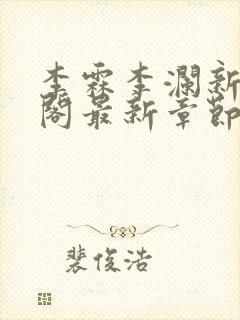 李霖李澜新
阁最新章节
裴俊浩